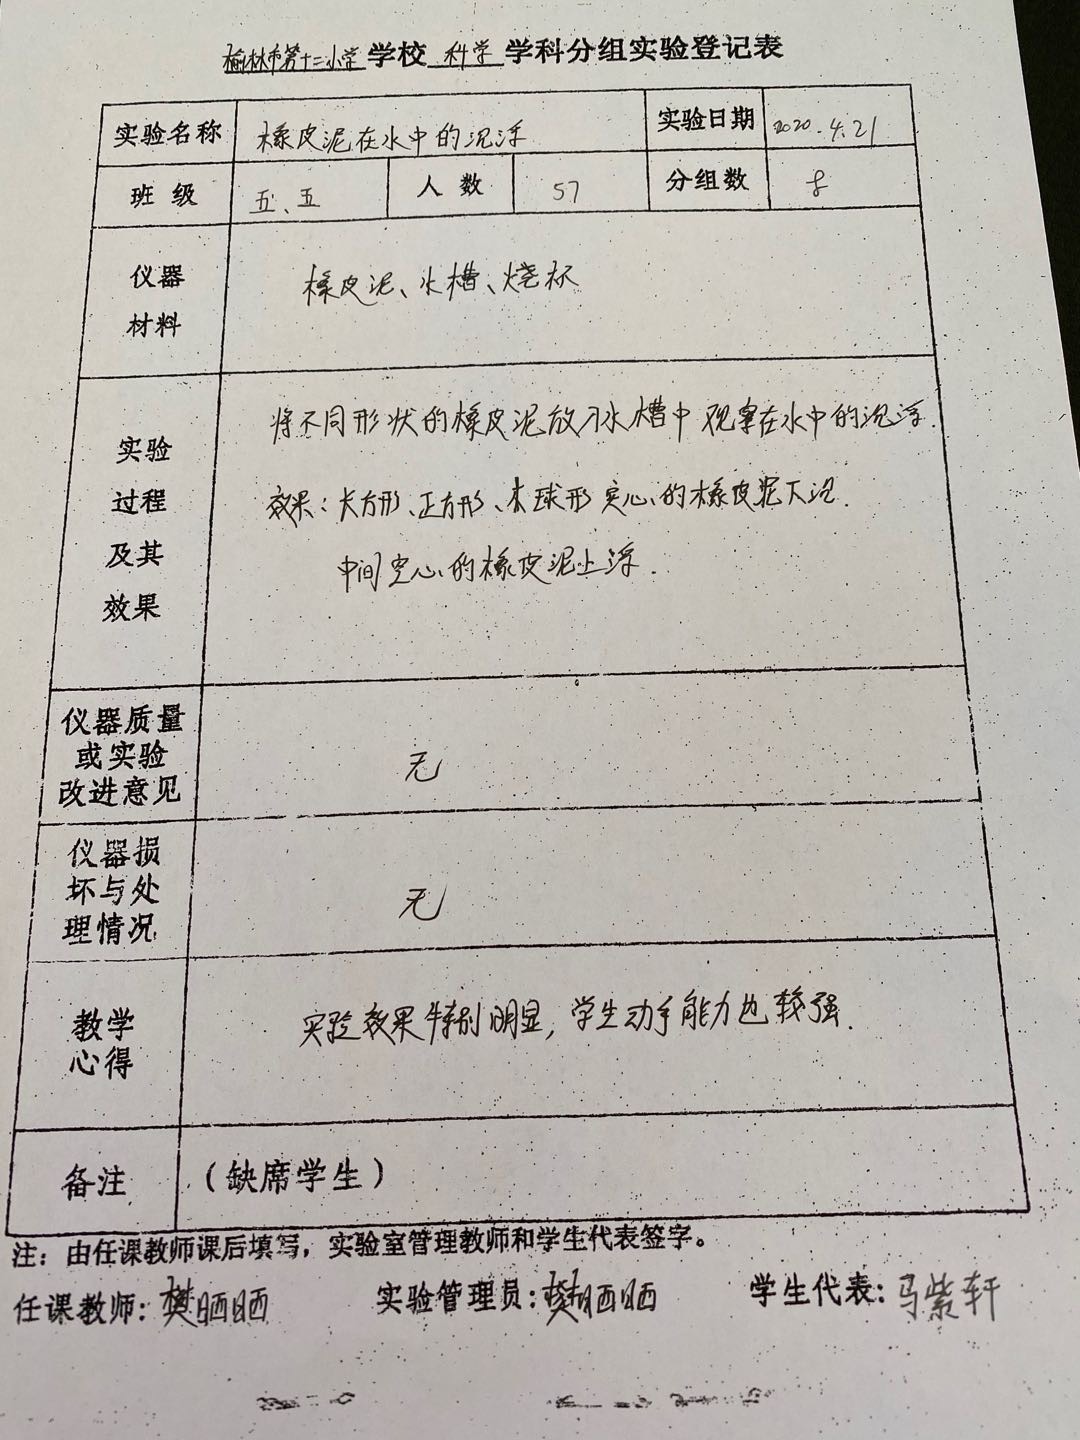 榆林市第十二小学学校 科学 学科分组实验登记表
实验名称 橡皮泥在水中的沉浮 实验日期 2020.4.21
班级 五、五 人数 57 分组数 8
仪器
材料
橡皮泥、水槽、烧杯
实验
过程
及其
效果
将不同形状的橡皮泥放入水槽中观察在水中的沉浮.
效果:长方形、正方形、球形实心的橡皮泥下沉.
中间空心的橡皮泥上浮.
仪器质量
或实验
改进意见
无
仪器损
坏与处
理情况
无
教学
心得
实验效果特别明显,学生动手能力也较强.
备注 (缺席学生)
注:由任课教师课后填写,实验室管理教师和学生代表签字。
任课教师:樊晒晒 实验管理员:樊晒晒 学生代表:马紫轩